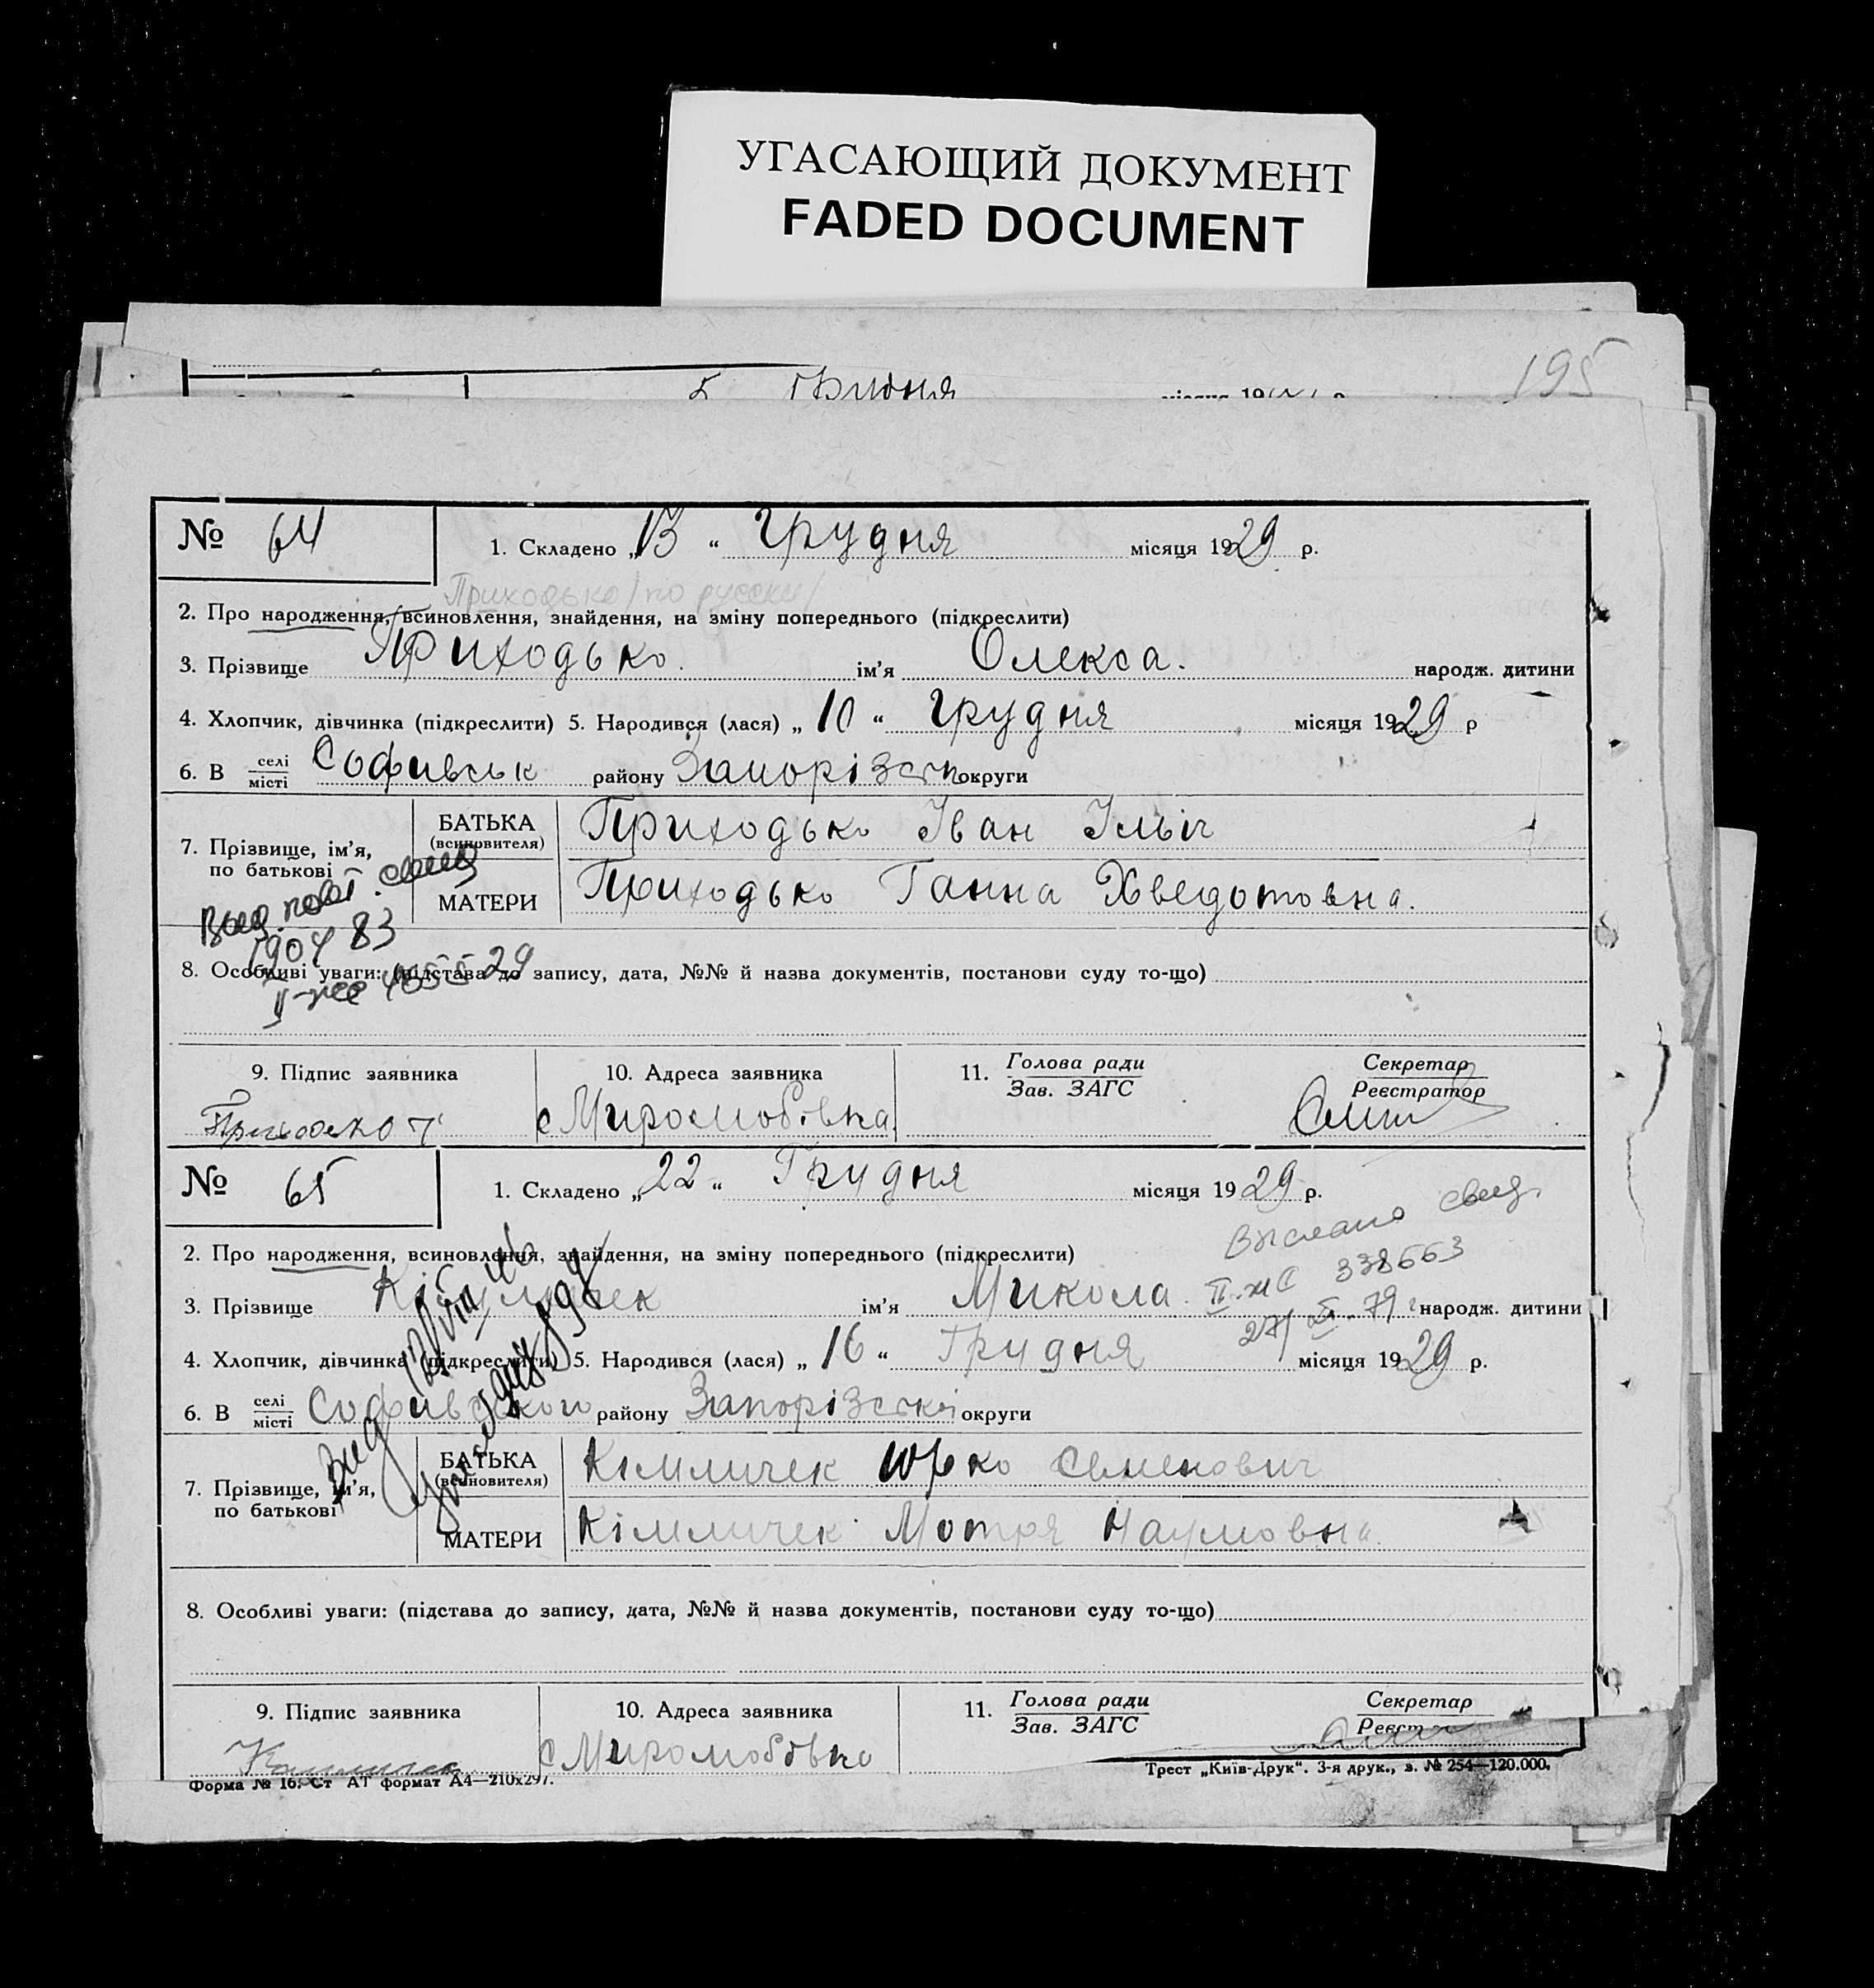 УГАСАЮЩИЙ ДОКУМЕНТ
FADED DOCUMENT
195
5 Грудня місяця 19
№ 64
1. Складено „13“ Грудня місяця 1929 р.
Приходько /по русски/
2. Про народження, всиновлення, знайдення, на зміну попереднього (підкреслити)
3. Прізвище Приходько. ім’я Олекса. народж. дитини
4. Хлопчик, дівчинка (підкреслити) 5. Народився (лася) „10“ Грудня місяця 1929 р
6. В селі/місті Софивськ району Запорізськ округи
7. Прізвище, ім’я, по батькові
БАТЬКА (всиновителя) Приходько Іван Ільіч
МАТЕРИ Приходько Ганна Хведотовна.
Выд. повт. свид
8. Особливі уваги: (підстава до запису, дата, №№ й назва документів, постанови суду то-що)
9. Підпис заявника
10. Адреса заявника
11. Голова ради
Зав. ЗАГС
Секретар
Реєстратор
Приходько
с Миролюбовка
№ 65
1. Складено „22“ Грудня місяця 1929 р.
Выслано свид
2. Про народження, всиновлення, знайдення, на зміну попереднього (підкреслити)
II-ЖС 338663
3. Прізвище ім’я Микола народж. дитини
4. Хлопчик, дівчинка (підкреслити) 5. Народився (лася) „16“ Грудня місяця 1929 р.
6. В селі/місті Софивського району Запорізської округи
7. Прізвище, ім’я, по батькові
БАТЬКА (всиновителя) Кімличек Юрко Семенович
МАТЕРИ Кімличек Мотря Наумовна.
8. Особливі уваги: (підстава до запису, дата, №№ й назва документів, постанови суду то-що)
9. Підпис заявника
10. Адреса заявника
11. Голова ради
Зав. ЗАГС
Секретар
с Миролюбовка
Форма № 16. Ст АТ формат А4—210х297.
Трест „Київ-Друк“. 3-я друк., з. № 254—120.000.